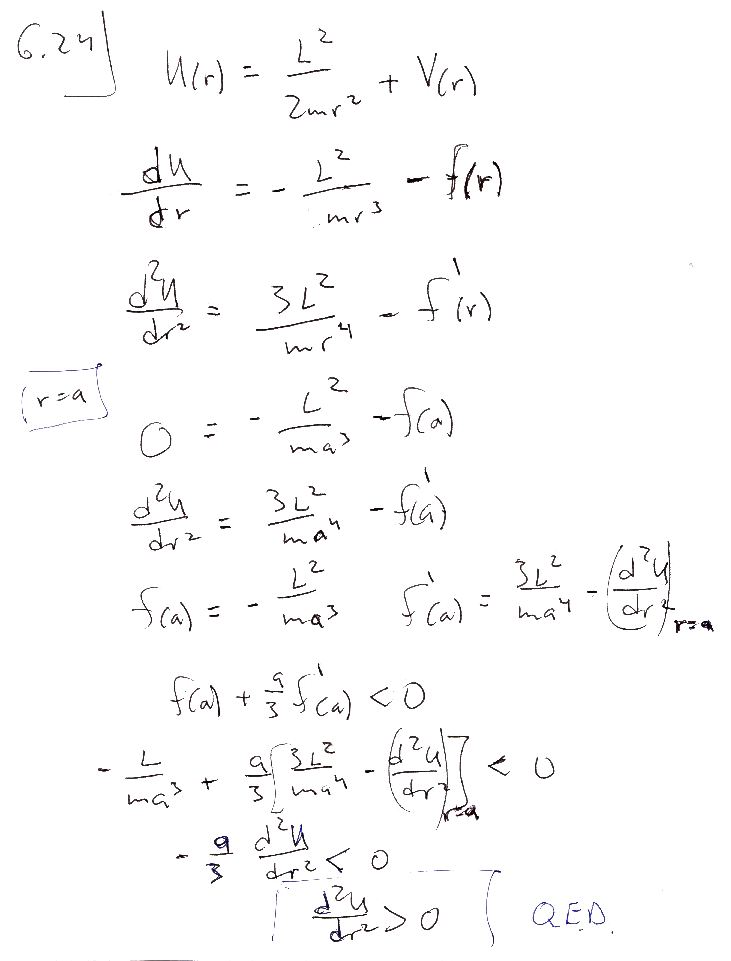 6.24
U(r) = L²/2mr² + V(r)
dU/dr = - L²/mr³ - f(r)
d²U/dr² = 3L²/mr⁴ - f'(r)
r=a
0 = - L²/ma³ - f(a)
d²U/dr² = 3L²/ma⁴ - f'(a)
f(a) = - L²/ma³ f'(a) = 3L²/ma⁴ - (d²U/dr²)r=a
f(a) + a/3 f'(a) < 0
- L/ma³ + a/3 [3L²/ma⁴ - (d²U/dr²)r=a] < 0
- a/3 d²U/dr² < 0
d²U/dr² > 0 Q.E.D.